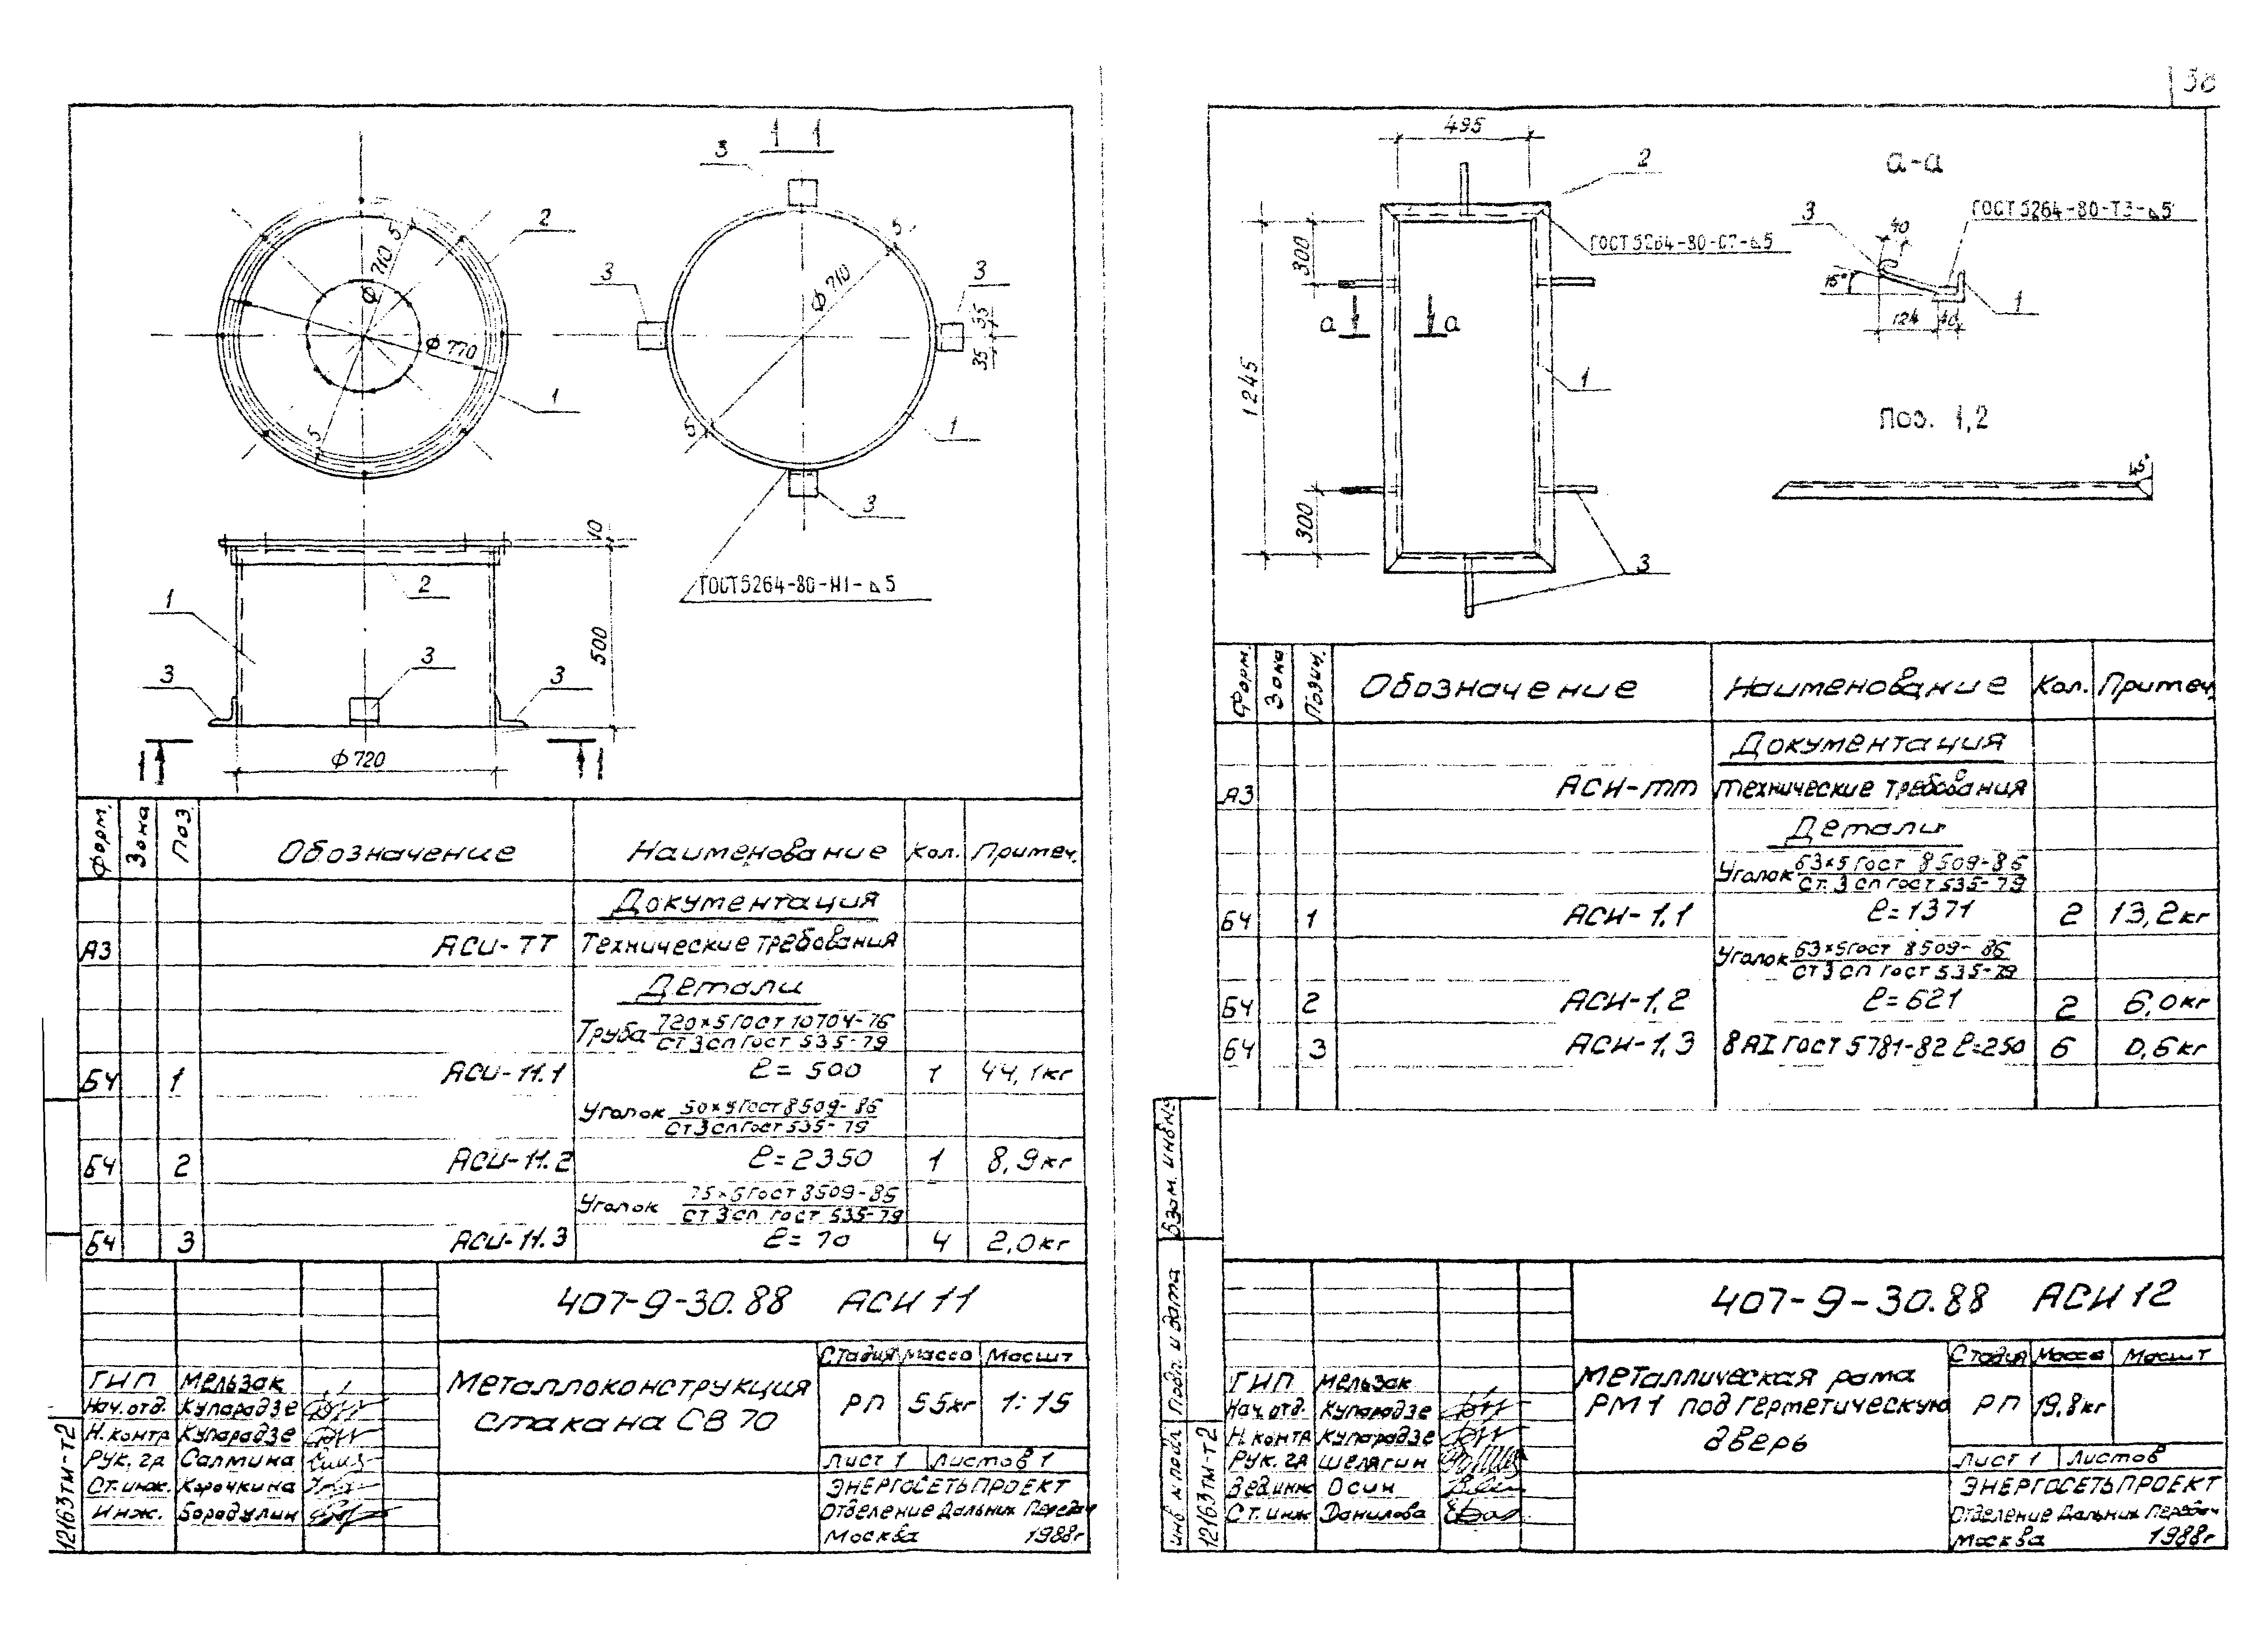 38
1 1
3
2
5
ϕ 710
ϕ 770
1
5
3
3
5
ϕ 710
35
35
5
1
3
ГОСТ 5264-80-Н1-⊿5
10
2
1
500
3
3
3
1 1
ϕ 720
Форм. Зона Поз. Обозначение Наименование Кол. Примеч.
Документация
А3 АСИ-ТТ Технические требования
Детали
Труба 720×5 ГОСТ 10704-76
Ст3сп ГОСТ 535-79
БЧ 1 АСИ-11.1 ℓ=500 1 44,1кг
Уголок 50×5 ГОСТ 8509-86
Ст3сп ГОСТ 535-79
БЧ 2 АСИ-11.2 ℓ=2350 1 8,9кг
Уголок 75×5 ГОСТ 8509-86
Ст3сп ГОСТ 535-79
БЧ 3 АСИ-11.3 ℓ=70 4 2,0кг
407-9-30.88 АСИ 11
Металлоконструкция
стакана СВ 70
Стадия Масса Масшт
РП 55кг 1:15
Лист 1 Листов 1
ЭНЕРГОСЕТЬПРОЕКТ
Отделение Дальних Передач
Москва 1988г
ГИП Мельзак
Нач.отд. Купарадзе
Н.контр Купарадзе
Рук.гр Салтина
Ст.инж. Корочкина
Инж. Бородулин
12163тм-т2
495
2
а-а
3
ГОСТ 5264-80-Т3-⊿5
ГОСТ 5264-80-С7-⊿5
40
15°
1
124 40
300
а 1 1 а
1245
1
Поз. 1,2
45°
300
3
Форм. Зона Позиц. Обозначение Наименование Кол. Примеч.
Документация
А3 АСИ-тт технические требования
Детали
Уголок 63×5 ГОСТ 8509-86
Ст.3сп ГОСТ 535-79
БЧ 1 АСИ-1.1 ℓ=1371 2 13,2кг
Уголок 63×5 ГОСТ 8509-86
Ст3сп ГОСТ 535-79
БЧ 2 АСИ-1.2 ℓ=621 2 6,0кг
БЧ 3 АСИ-1.3 8АI ГОСТ 5781-82 ℓ=250 6 0,6кг
407-9-30.88 АСИ 12
Металлическая рама
РМ1 под герметическую
дверь
Стадия Масса Масшт
РП 19,8кг
Лист 1 Листов
ЭНЕРГОСЕТЬПРОЕКТ
Отделение Дальних Передач
Москва 1988г
ГИП Мельзак
Нач.отд. Купарадзе
Н.контр Купарадзе
Рук.гр Шелягин
Вед.инж Осин
Ст.инж Данилова
Взам. инв№
Подп. и дата
инв № подл
12163тм-т2